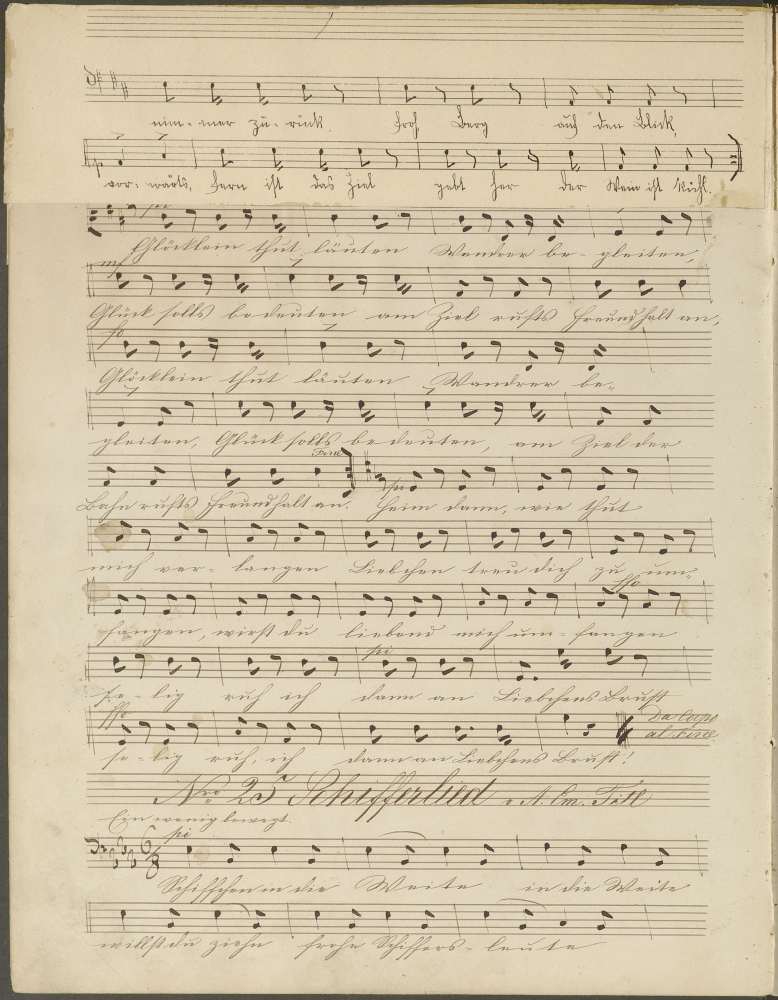 nim-mer zu-rück. Froh Berg auf den Blick,
vor-wärts, fern ist das Ziel gebt her der Wein ist kühl.
Glöcklein thut läuten Wandrer be-gleiten,
mf
Glück solls bedeuten am Ziel rufts Freund halt an,
fo
Glöcklein thut läuten, Wandrer be-
gleiten, Glück solls bedeuten, am Ziel der
Fine
pi
Bahn rufts Freund halt an. Heim dann, wie thut
mich ver-langen Liebchen treu dich zu um-
ffo
fangen, wirst du liebend mich um-fangen
pi
se-lig ruh ich dann an Liebchens Brust
ffo Da Capo
al Fine
se-lig ruh, ich dann an Liebchens Brust!
Nro 25 Schifferlied v. A. Em. Titl
Ein wenig bewegt.
pi
6/8
Schiffchen in die Weite in die Weite
willst du ziehn frohe Schiffers-leute